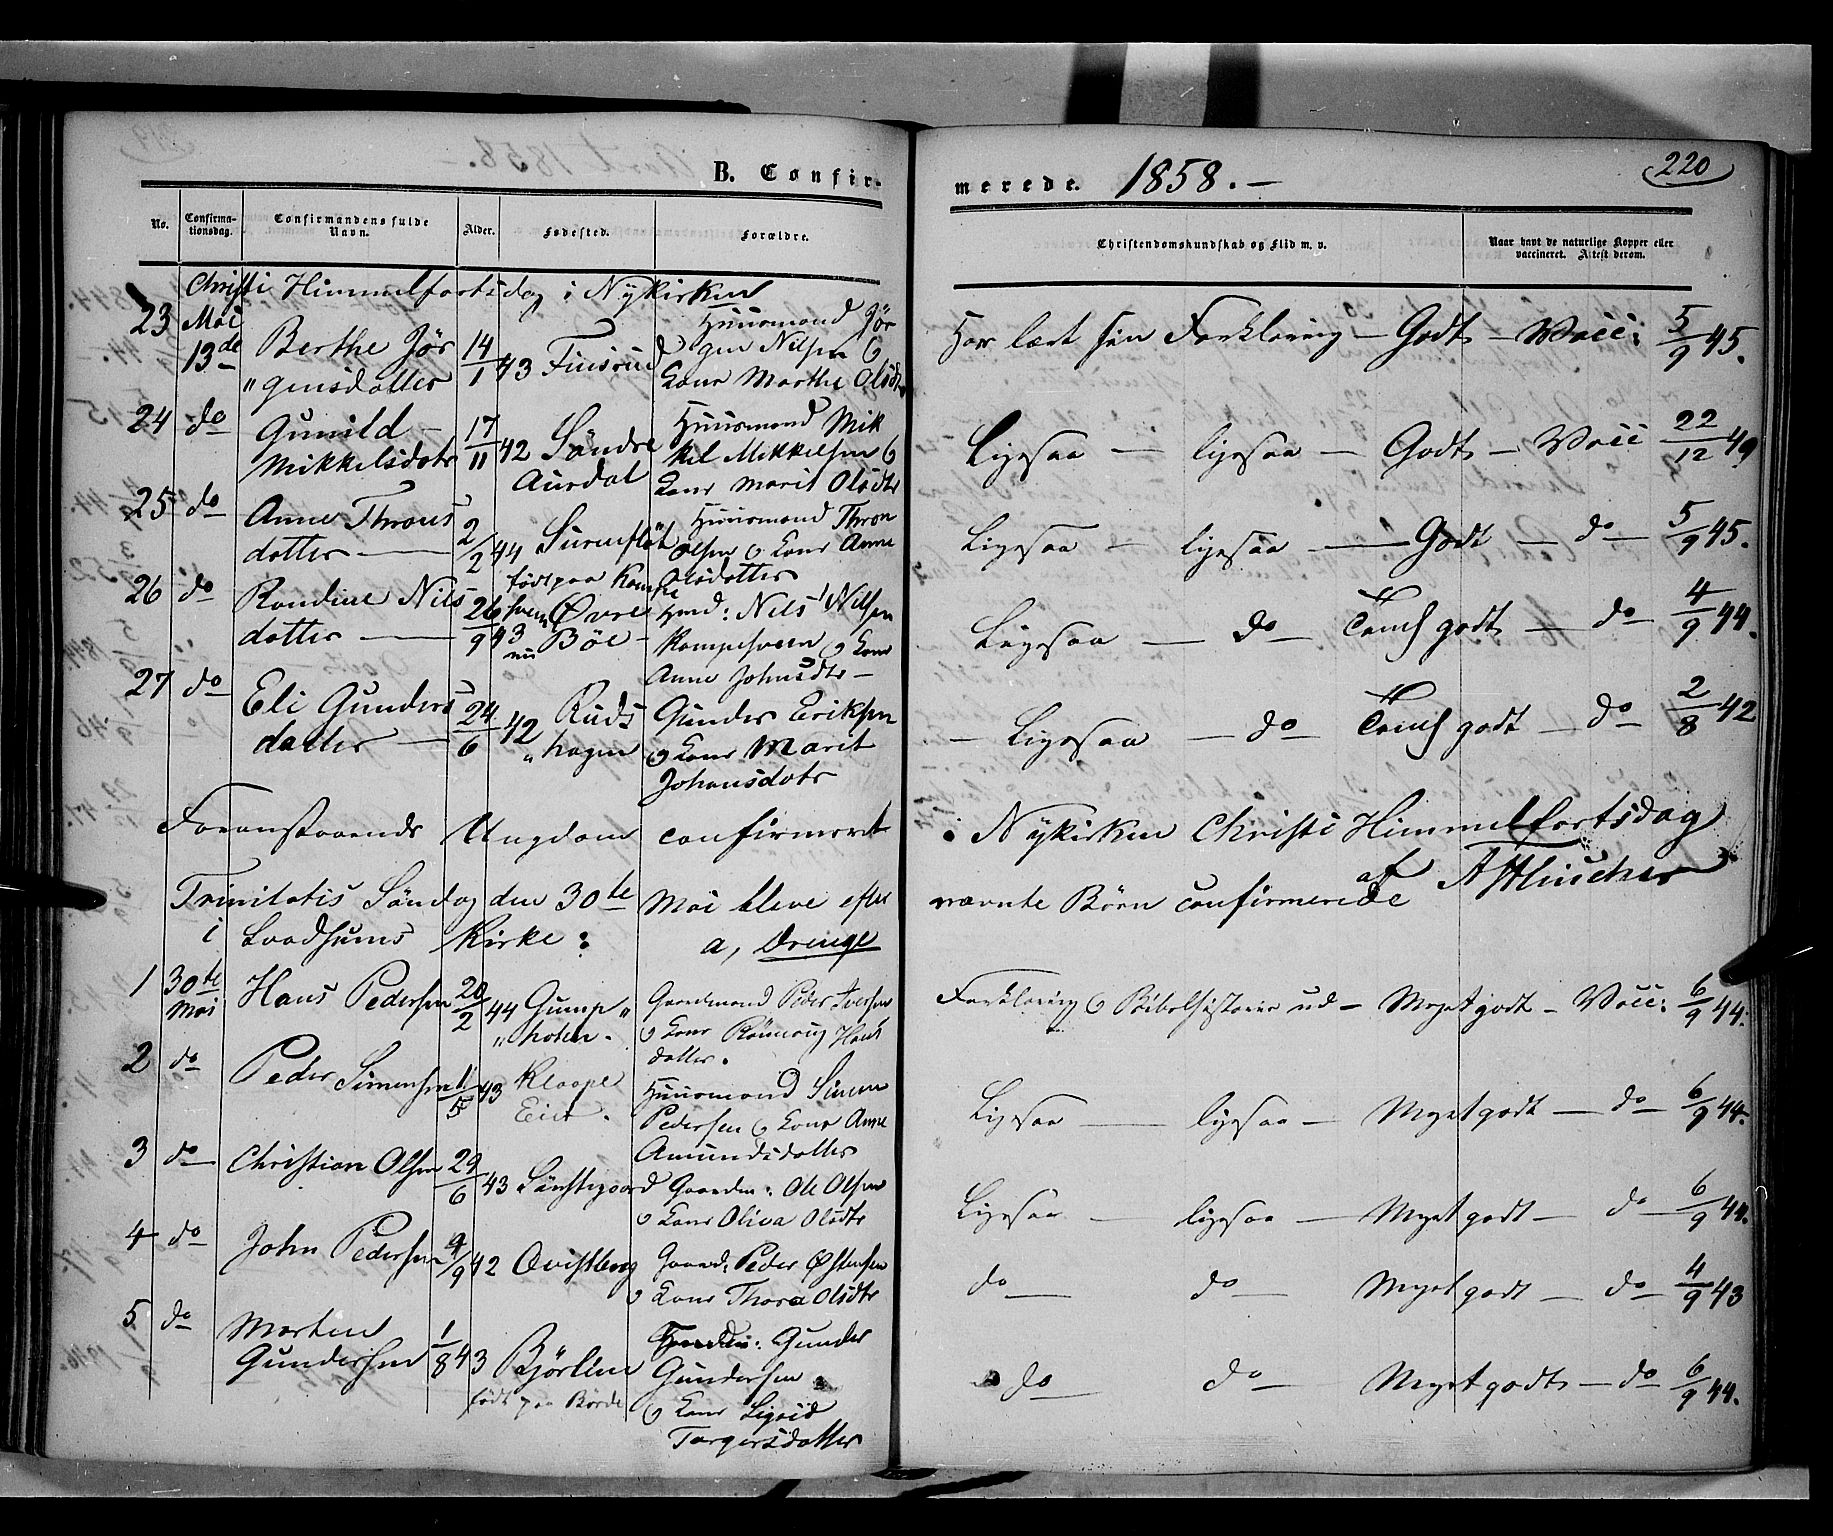 B. Confir-
merede. 1858. —
220
No.
Confirma-
tionsdag.
Confirmandens fulde
Navn.
Alder.
Fødested.
Forældre.
Christendomskundskab og Flid m. v.
Naar havt de naturlige Kopper eller
vaccineret. Attest derom.
Christi Himmelfartsdag i Nykirken
23 Mai 13de Berthe Jør 14/1 43 Huusmand Jør
"gensdatter gen Nilsen &
Kone Marthe Olsdtr
Har lært sin Forklaring — Godt — Vacc: 5/9 45.
24 do Gunild — 17/11 42 Søndre Huusmand Mik
Mikkelsdatr Aurdal kel Mikkelsen &
Kone Marit Olsdtr
Ligesaa — ligesaa — Godt — Vacc 22/12 49
25 do Anne Throns 2/2 44 Huusmand Thron
datter — Olsen & Kone Anne
Olsdatter
Ligesaa — ligesaa — Godt — do — 5/9 45.
26 do Rondine Nils 26/9 43 født paa Kampe
datter — svein Øvre Hmd: Nils Nilsen
nu Bøe — Kampesveen & Kone
Anne Johnsdtr —
Ligesaa — do — Temlf godt — do — 4/9 44.
27 do Eli Gunders 24/6 42 Ruds Gunder Eriksen
datter — "hagen & Kone Marit
Johansdatr
— Ligesaa — do — Temlf godt — do — 2/8 42
Foranstaaende Ungdom confirmeret
i Nykirken Christi Himmelfartsdag
af
Trinitatis Søndag den 30te Mai bleve efter
nævnte Børn confirmerede
i Kirke: a, Drenge
1 30te Mai Hans Pedersen 20/2 44 Gump" Gaardmand Peder Iversen
"holen. & Kone Rønnoug Hans
datter.
Forklaring & Bibelhistorie ud — Meget godt — Vacc: 6/9 44.
2 do Peder Simensen 1/5 43 Klaape Huusmand Simen
Eiet. Pedersen & Kone Anne
Amundsdatter
Ligesaa — ligesaa — Meget godt — do — 6/9 44.
3 do — Christian Olsen 29/6 43 Gaardm: Ole Olsen
& Kone Oliva Olsdtr
Ligesaa — ligesaa — Meget godt — do — 6/9 44.
4 do John Pedersen 4/9 42 Qvistberg Gaard: Peder Østensen
& Kone Thora Olsdtr
do — do — Meget godt — do — 4/9 43
5. do Morten 1/8 43 Bjørlien Gunder
Gundersen født paa Børde Gundersen
& Kone Sigrid
Torgersdatter
do — do — Meget godt — do — 6/9 44.